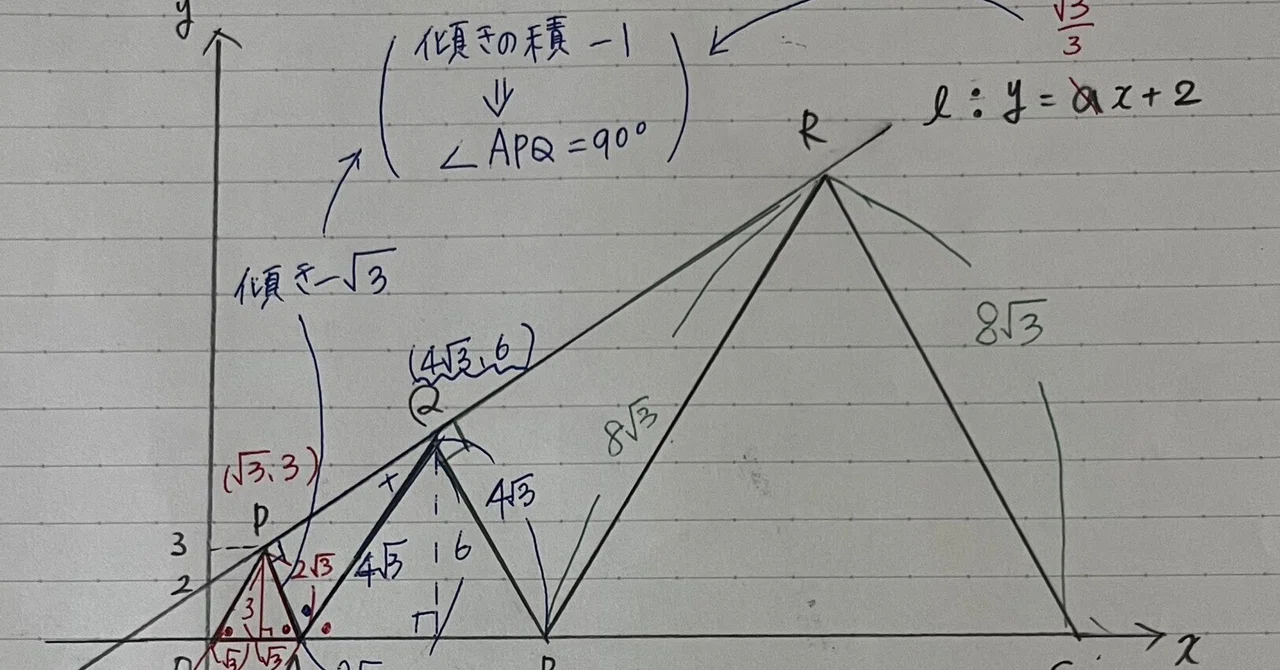 y
傾きの積 -1
⇓
∠APQ=90°
√3/3
l : y = ax+2
R
傾き-√3
(4√3, 6)
Q
8√3
8√3
(√3, 3)
P
4√3
3
2√3
4√3
6
2
3
x
√3 √3